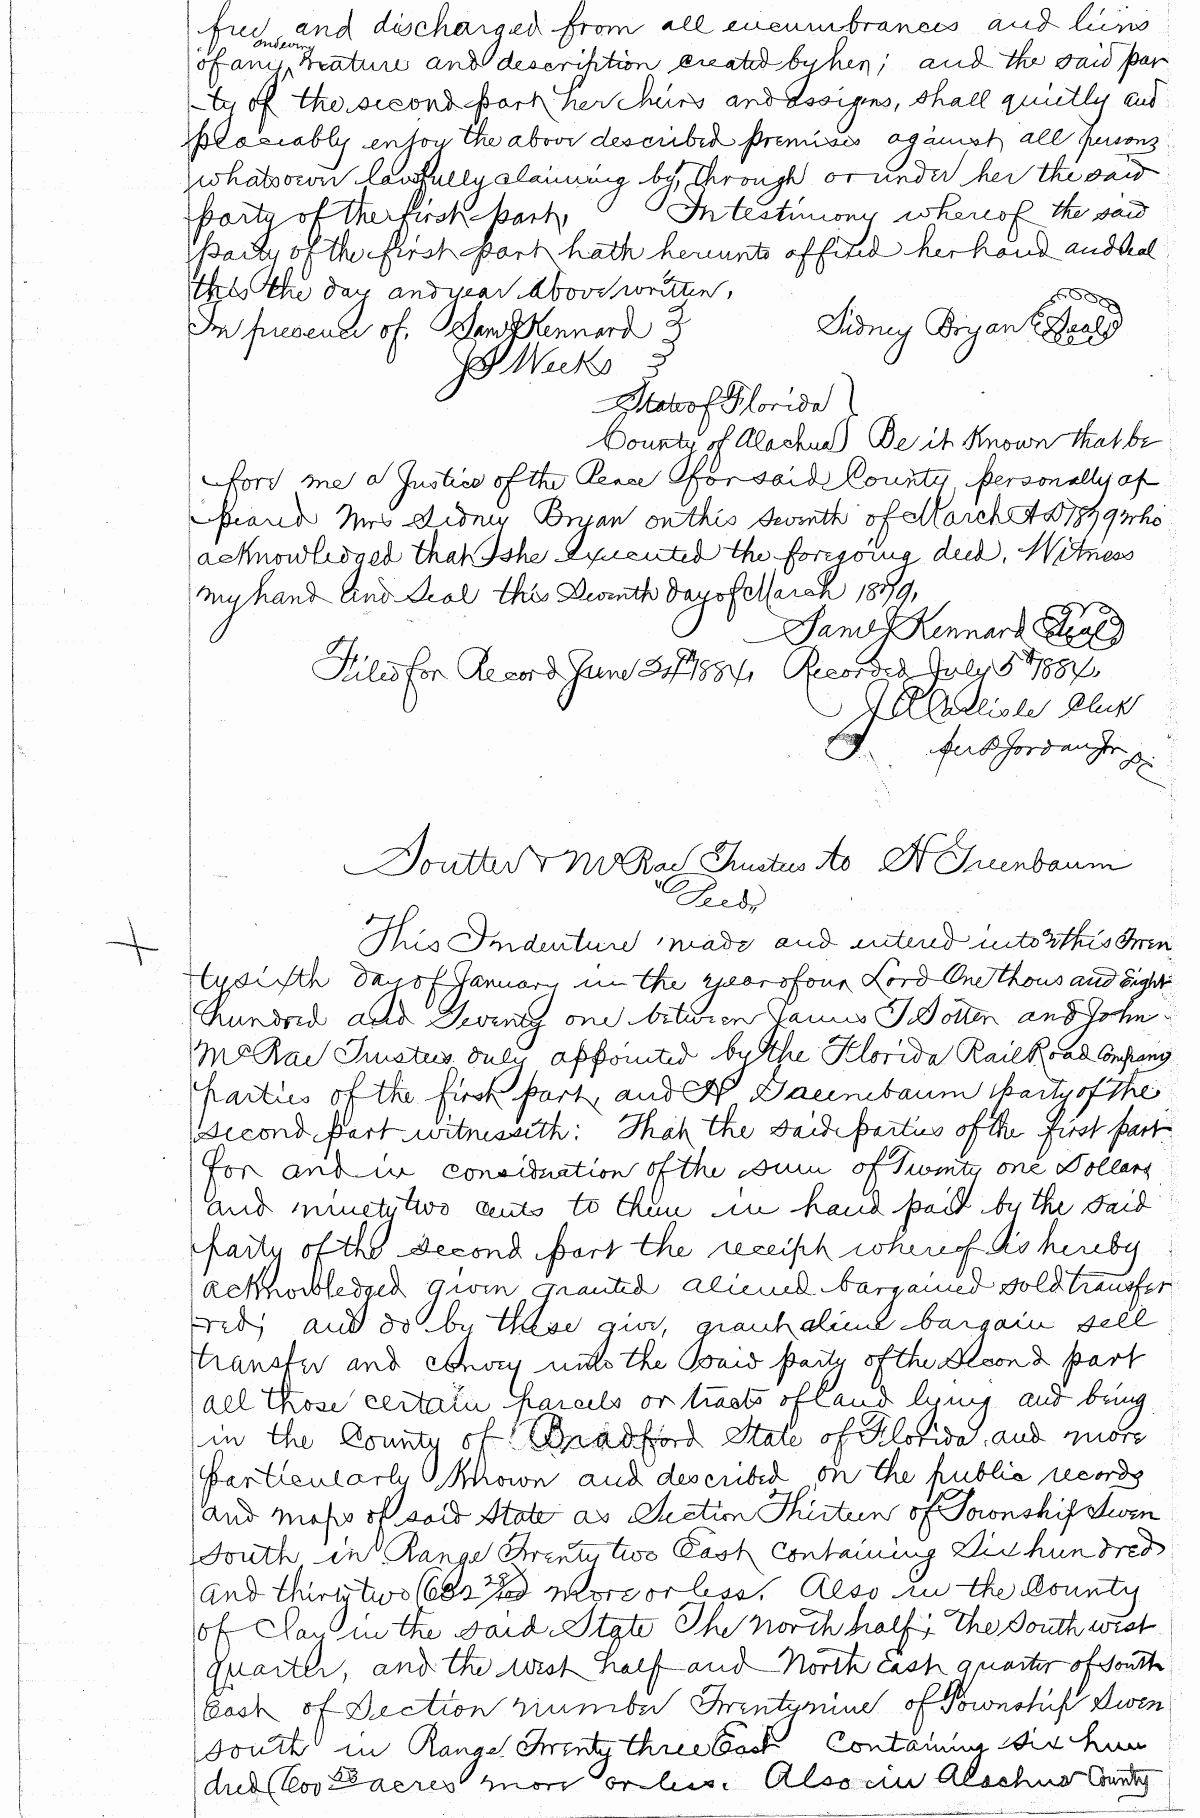 free and discharged from all encumbrances and liens
and every
of any nature and description created by her; and the said par
-ty of the second part her heirs and assigns, shall quietly and
peaceably enjoy the above described premises against all persons
whatsoever lawfully claiming by, through or under her the said
party of the first part. In testimony whereof the said
party of the first part hath hereunto affixed her hand and seal
this the day and year above written.
In presence of. Saml J Kennard Sidney Bryan (Seal)
J S Weeks
State of Florida
County of Alachua Be it Known that be
fore me a Justice of the Peace for said County personally ap
peared Mrs Sidney Bryan on this seventh of March AD 1879 who
acknowledged that she executed the foregoing deed. Witness
my hand and Seal this Seventh day of March 1879.
Saml J Kennard (Seal)
Filed for Record June 24th 1884. Recorded July 5th 1884.
J A Carlisle Clerk
per P Jordan Jr DC
Soutter & McRae Trustees to H Greenbaum
"Deed"
This Indenture made and entered into this Twen
ty sixth day of January in the year of our Lord One thousand Eight
hundred and Seventy one between James T Sotter and John
McRae Trustees duly appointed by the Florida Rail Road Company
parties of the first part, and H Greenebaum party of the
second part witnesseth: That the said parties of the first part
for and in consideration of the sum of Twenty one Dollars
and ninety two cents to them in hand paid by the said
party of the second part the receipt whereof is hereby
acknowledged given granted aliened bargained sold transfer
red; and do by these give, grant aliene bargain sell
transfer and convey unto the said party of the Second part
all those certain parcels or tracts of land lying and being
in the County of Bradford State of Florida, and more
particularly Known and described on the public records
and maps of said State as Section Thirteen of Township Seven
South in Range Twenty two East containing Six hundred
and thirty two (632 28/100) more or less. Also in the County
of Clay in the said State The North half; The South west
quarter, and the west half and North East quarter of South
East of Section number Twenty nine of Township Seven
South in Range Twenty three East Containing six hun
dred (600 acres more or less. Also in Alachua County